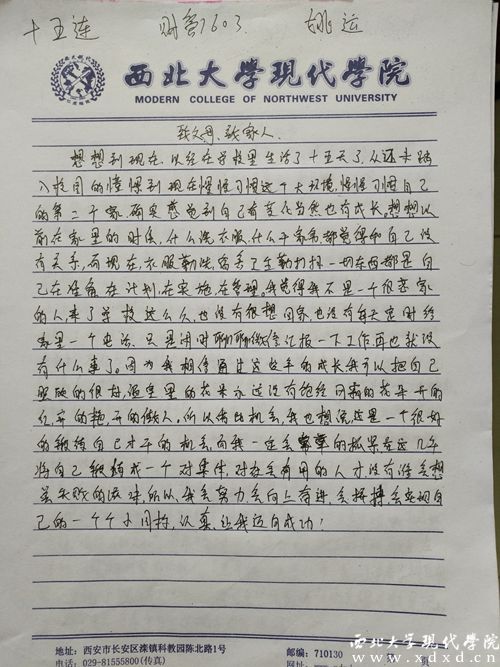 十五连 财管1603 姚远
西北大学现代学院
MODERN COLLEGE OF NORTHWEST UNIVERSITY
致父母、致家人
想想到现在,以经在学校里生活了十五天了,从还未踏
入校园的憧憬到现在慢慢习惯这个大环境,慢慢习惯自己
的第二个家,确实感觉到自己有变化当然也有成长,想想以
前在家里的时候,什么洗衣服,什么干家务都觉得和自己没
有关系,而现在,衣服勤洗,宿舍卫生勤打扫,一切东西都是自
己在准备,在计划,在实施,在管理。我觉得我不是一个很恋家
的人,来了学校这么久,也没有很想回家,也没有每天定时给
家里一个电话,只是闲时聊聊微信,汇报一下工作再也就没
有什么事了。因为我相信通过这些年的成长我可以把自己
照顾的很好,温室里的花朵永远没有饱经风霜的花朵开的
久,开的艳,开的傲人。所以借此机会,我也想说,这是一个很好
的锻炼自己才干的机会,而我一定会牢牢的抓紧这几年
将自己锻炼成一个对集体,对社会有用的人才,没有谁会想
当失败的流球,所以,我会努力会向上奋进,会拼搏会实现自
己的一个个小目标,认真,让我迈向成功!
地址:西安市长安区滦镇科教园陈北路1号
邮编:710130
电话:029-81555800(传真)
西北大学现代学院
www.xdxd.cn